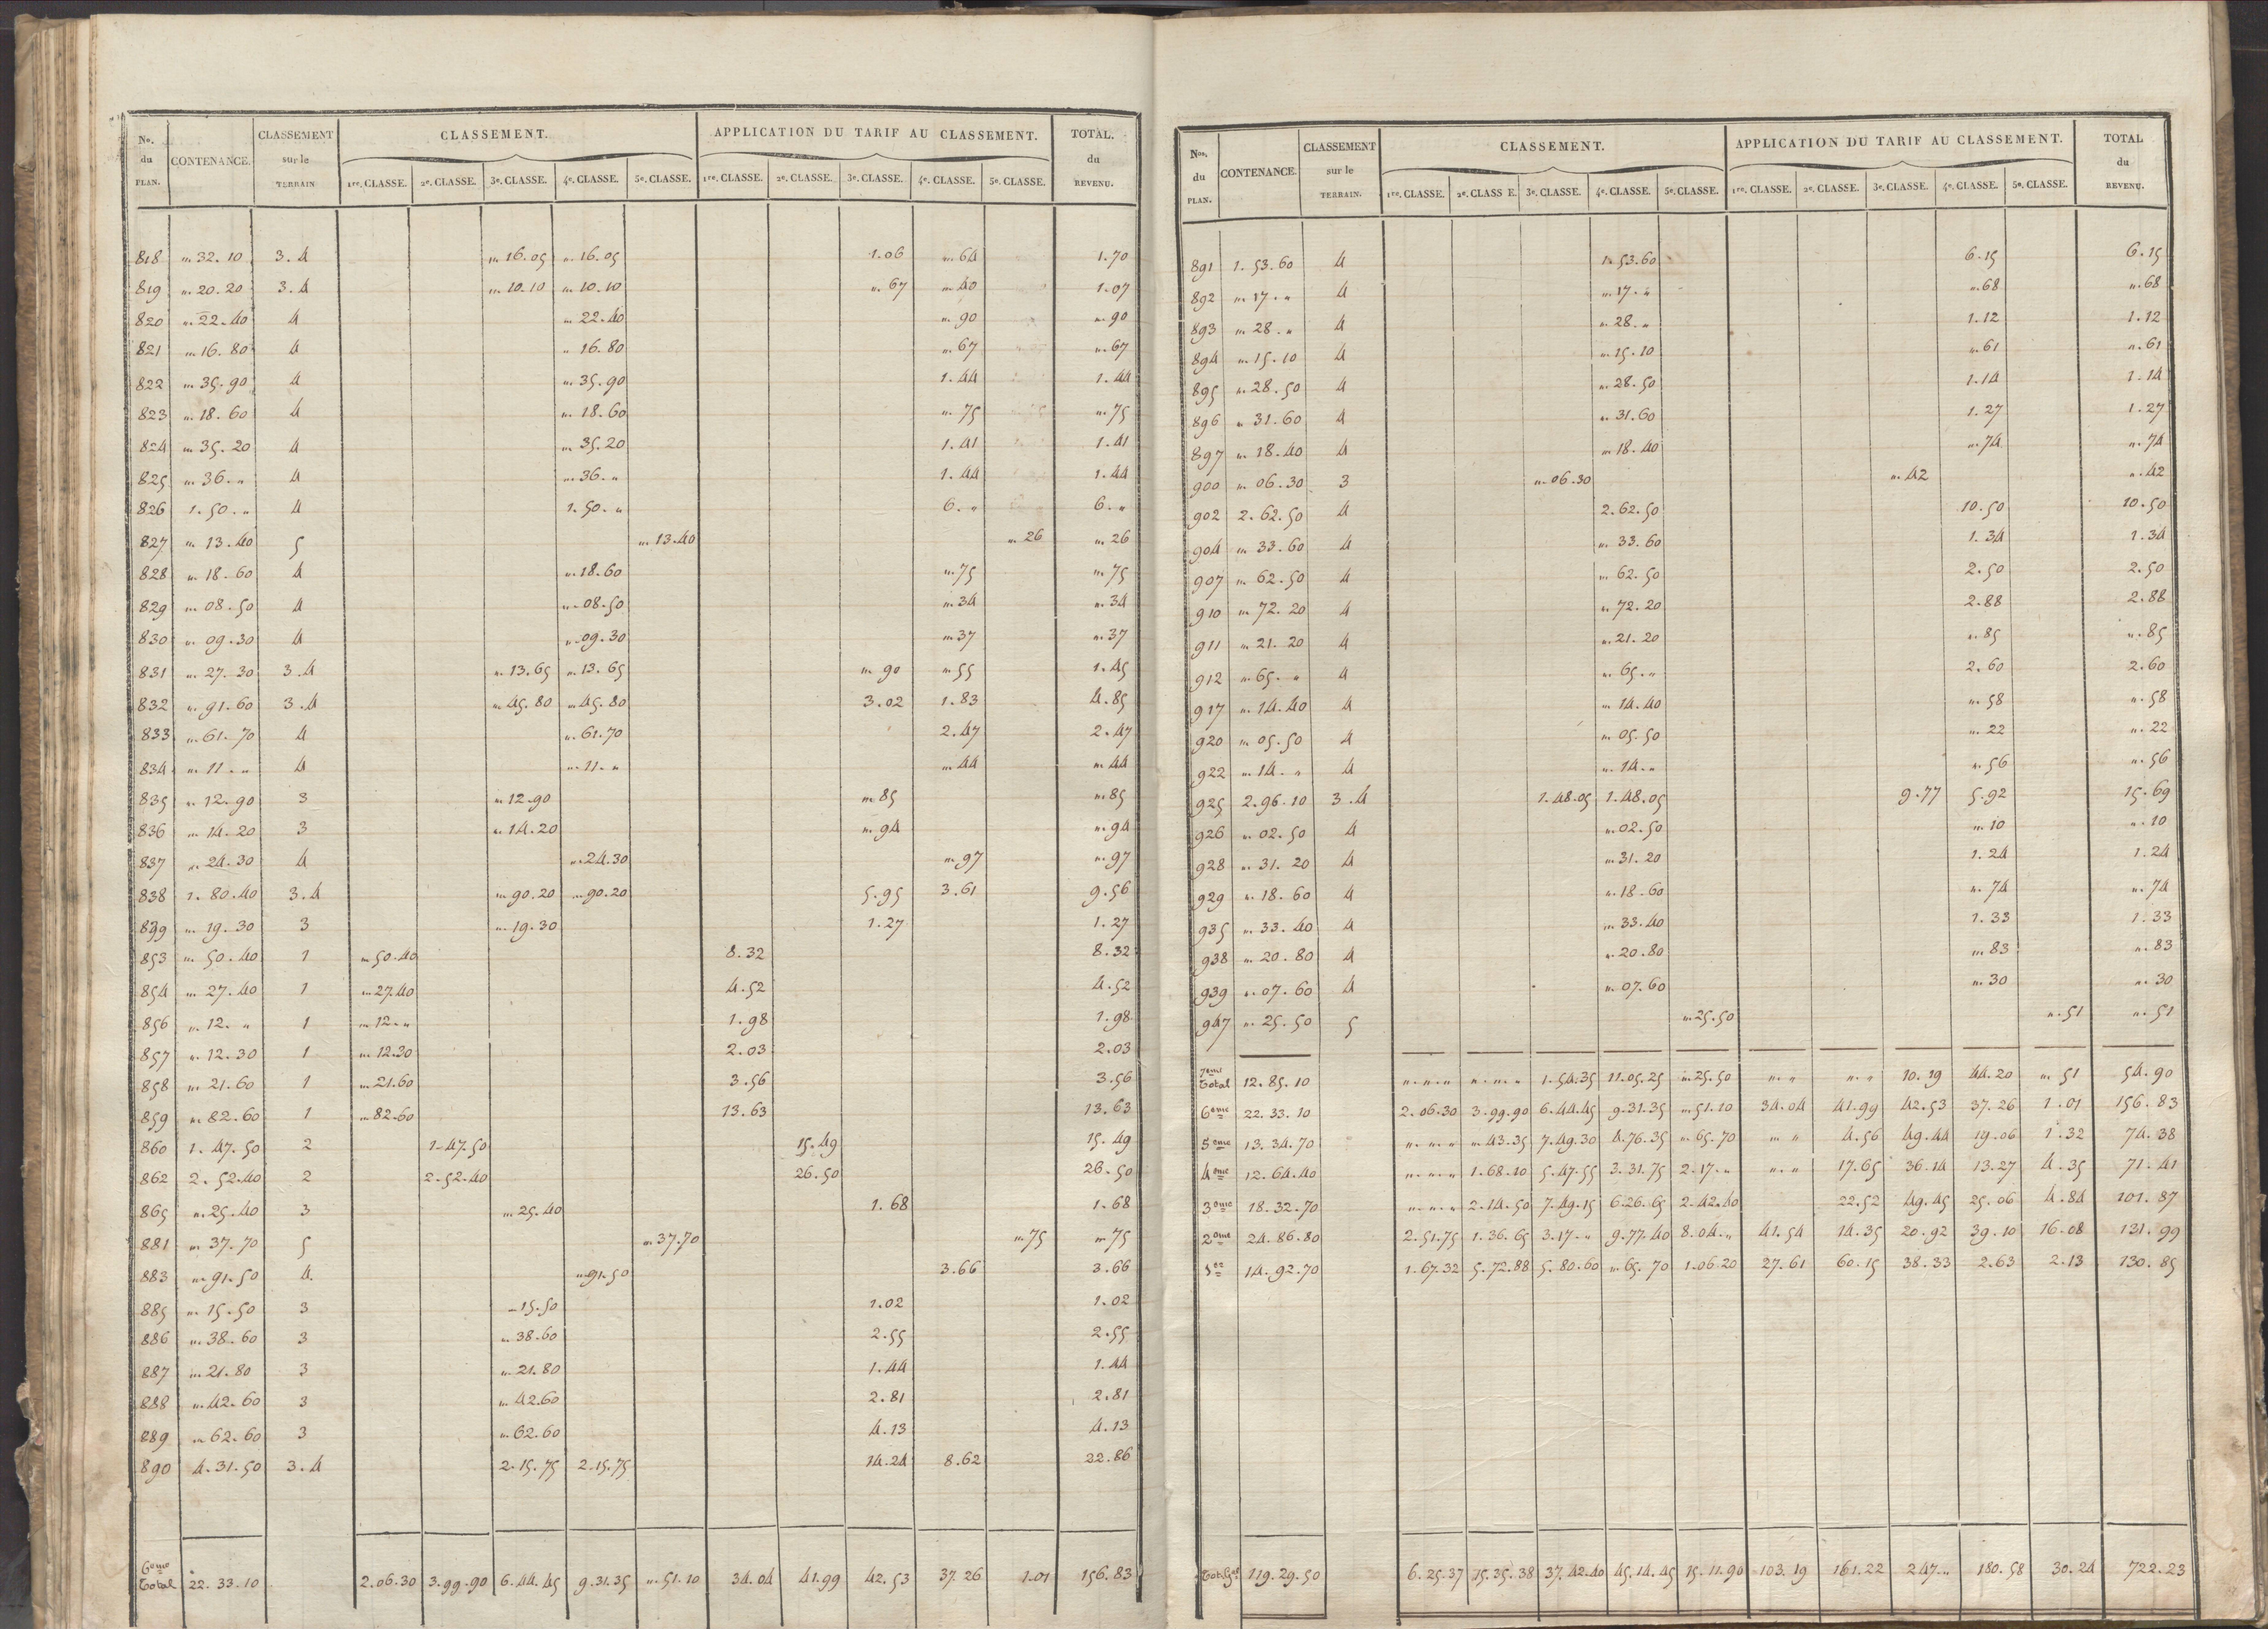 No. du PLAN. CONTENANCE. CLASSEMENT sur le TERRAIN CLASSEMENT. APPLICATION DU TARIF AU CLASSEMENT. TOTAL. du REVENU.
1re. CLASSE. 2e. CLASSE. 3e. CLASSE. 4e. CLASSE. 5e. CLASSE. 1re. CLASSE. 2e. CLASSE. 3e. CLASSE. 4e. CLASSE. 5e. CLASSE.
818 „. 32. 10 3. 4 „. 16. 05 „. 16. 05 1. 06 „. 64 1. 70
819 „. 20. 20 3. 4 „. 10. 10 „. 10. 10 „. 67 „. 40 1. 07
820 „. 22. 40 4 „. 22. 40 „. 90 „. 90
821 „. 16. 80 4 „. 16. 80 „. 67 „. 67
822 „. 35. 90 4 „. 35. 90 1. 44 1. 44
823 „. 18. 60 4 „. 18. 60 „. 75 „. 75
824 „. 35. 20 4 „. 35. 20 1. 41 1. 41
825 „. 36. „ 4 „. 36. „ 1. 44 1. 44
826 1. 50. „ 4 1. 50. „ 6. „ 6. „
827 „. 13. 40 5 „. 13. 40 „. 26 „. 26
828 „. 18. 60 4 „. 18. 60 „. 75 „. 75
829 „. 08. 50 4 „. 08. 50 „. 34 „. 34
830 „. 09. 30 4 „. 09. 30 „. 37 „. 37
831 „. 27. 30 3. 4 „. 13. 65 „. 13. 65 „. 90 „. 55 1. 45
832 „. 91. 60 3. 4 „. 45. 80 „. 45. 80 3. 02 1. 83 4. 85
833 „. 61. 70 4 „. 61. 70 2. 47 2. 47
834 „. 11. „ 4 „. 11. „ „. 44 „. 44
835 „. 12. 90 3 „. 12. 90 „. 85 „. 85
836 „. 14. 20 3 „. 14. 20 „. 94 „. 94
837 „. 24. 30 4 „. 24. 30 „. 97 „. 97
838 1. 80. 40 3. 4 „. 90. 20 „. 90. 20 5. 95 3. 61 9. 56
839 „. 19. 30 3 „. 19. 30 1. 27 1. 27
853 „. 50. 40 1 „. 50. 40 8. 32 8. 32
854 „. 27. 40 1 „. 27. 40 4. 52 4. 52
856 „. 12. „ 1 „. 12. „ 1. 98 1. 98
857 „. 12. 30 1 „. 12. 30 2. 03 2. 03
858 „. 21. 60 1 „. 21. 60 3. 56 3. 56
859 „. 82. 60 1 „. 82. 60 13. 63 13. 63
860 1. 47. 50 2 1. 47. 50 15. 49 15. 49
862 2. 52. 40 2 2. 52. 40 26. 50 26. 50
865 „. 25. 40 3 „. 25. 40 1. 68 1. 68
881 „. 37. 70 5 „. 37. 70 „. 75 „. 75
883 „. 91. 50 4. „. 91. 50 3. 66 3. 66
885 „. 15. 50 3 „. 15. 50 1. 02 1. 02
886 „. 38. 60 3 „. 38. 60 2. 55 2. 55
887 „. 21. 80 3 „. 21. 80 1. 44 1. 44
888 „. 42. 60 3 „. 42. 60 2. 81 2. 81
889 „. 62. 60 3 „. 62. 60 4. 13 4. 13
890 4. 31. 50 3. 4 2. 15. 75 2. 15. 75 14. 24 8. 62 22. 86
6eme Total 22. 33. 10 2. 06. 30 3. 99. 90 6. 44. 45 9. 31. 35 „. 51. 10 34. 04 41. 99 42. 53 37. 26 1. 01 156. 83
Nos. du PLAN. CONTENANCE. CLASSEMENT sur le TERRAIN. CLASSEMENT. APPLICATION DU TARIF AU CLASSEMENT. TOTAL du REVENU.
1re. CLASSE. 2e. CLASS E. 3e. CLASSE. 4e. CLASSE. 5e. CLASSE. 1re. CLASSE. 2e. CLASSE. 3e. CLASSE. 4e. CLASSE. 5e. CLASSE.
891 1. 53. 60 4 1. 53. 60 6. 15 6. 15
892 „. 17. „ 4 „. 17. „ „. 68 „. 68
893 „. 28. „ 4 „. 28. „ 1. 12 1. 12
894 „. 15. 10 4 „. 15. 10 „. 61 „. 61
895 „. 28. 50 4 „. 28. 50 1. 14 1. 14
896 „. 31. 60 4 „. 31. 60 1. 27 1. 27
897 „. 18. 40 4 „. 18. 40 „. 74 „. 74
900 „. 06. 30 3 „. 06. 30 „. 42 „. 42
902 2. 62. 50 4 2. 62. 50 10. 50 10. 50
904 „. 33. 60 4 „. 33. 60 1. 34 1. 34
907 „. 62. 50 4 „. 62. 50 2. 50 2. 50
910 „. 72. 20 4 „. 72. 20 2. 88 2. 88
911 „. 21. 20 4 „. 21. 20 „. 85 „. 85
912 „. 65. „ 4 „. 65. „ 2. 60 2. 60
917 „. 14. 40 4 „. 14. 40 „. 58 „. 58
920 „. 05. 50 4 „. 05. 50 „. 22 „. 22
922 „. 14. „ 4 „. 14. „ „. 56 „. 56
925 2. 96. 10 3. 4 1. 48. 05 1. 48. 05 9. 77 5. 92 15. 69
926 „. 02. 50 4 „. 02. 50 „. 10 „. 10
928 „. 31. 20 4 „. 31. 20 1. 24 1. 24
929 „. 18. 60 4 „. 18. 60 „. 74 „. 74
935 „. 33. 40 4 „. 33. 40 1. 33 1. 33
938 „. 20. 80 4 „. 20. 80 „. 83 „. 83
939 „. 07. 60 4 „. 07. 60 „. 30 „. 30
947 „. 25. 50 5 „. 25. 50 „. 51 „. 51
7eme Total 12. 85. 10 „. „. „ „. „. „ 1. 54. 35 11. 05. 25 „. 25. 50 „. „ „. „ 10. 19 44. 20 „. 51 54. 90
6eme 22. 33. 10 2. 06. 30 3. 99. 90 6. 44. 45 9. 31. 35 „. 51. 10 34. 04 41. 99 42. 53 37. 26 1. 01 156. 83
5eme 13. 34. 70 „. „. „ „. 43. 35 7. 49. 30 4. 76. 35 „. 65. 70 „. „ 4. 56 49. 44 19. 06 1. 32 74. 38
4eme 12. 64. 40 „. „. „ 1. 68. 10 5. 47. 55 3. 31. 75 2. 17. „ „. „ 17. 65 36. 14 13. 27 4. 35 71. 41
3eme 18. 32. 70 „. „. „ 2. 14. 50 7. 49. 15 6. 26. 65 2. 42. 40 22. 52 49. 45 25. 06 4. 84 101. 87
2eme 24. 86. 80 2. 51. 75 1. 36. 65 3. 17. „ 9. 77. 40 8. 04. „ 41. 54 14. 35 20. 92 39. 10 16. 08 131. 99
1er 14. 92. 70 1. 67. 32 5. 72. 88 5. 80. 60 „. 65. 70 1. 06. 20 27. 61 60. 15 38. 33 2. 63 2. 13 130. 85
Total gal 119. 29. 50 6. 25. 37 15. 35. 38 37. 42. 40 45. 14. 45 15. 11. 90 103. 19 161. 22 247. „ 180. 58 30. 24 722. 23